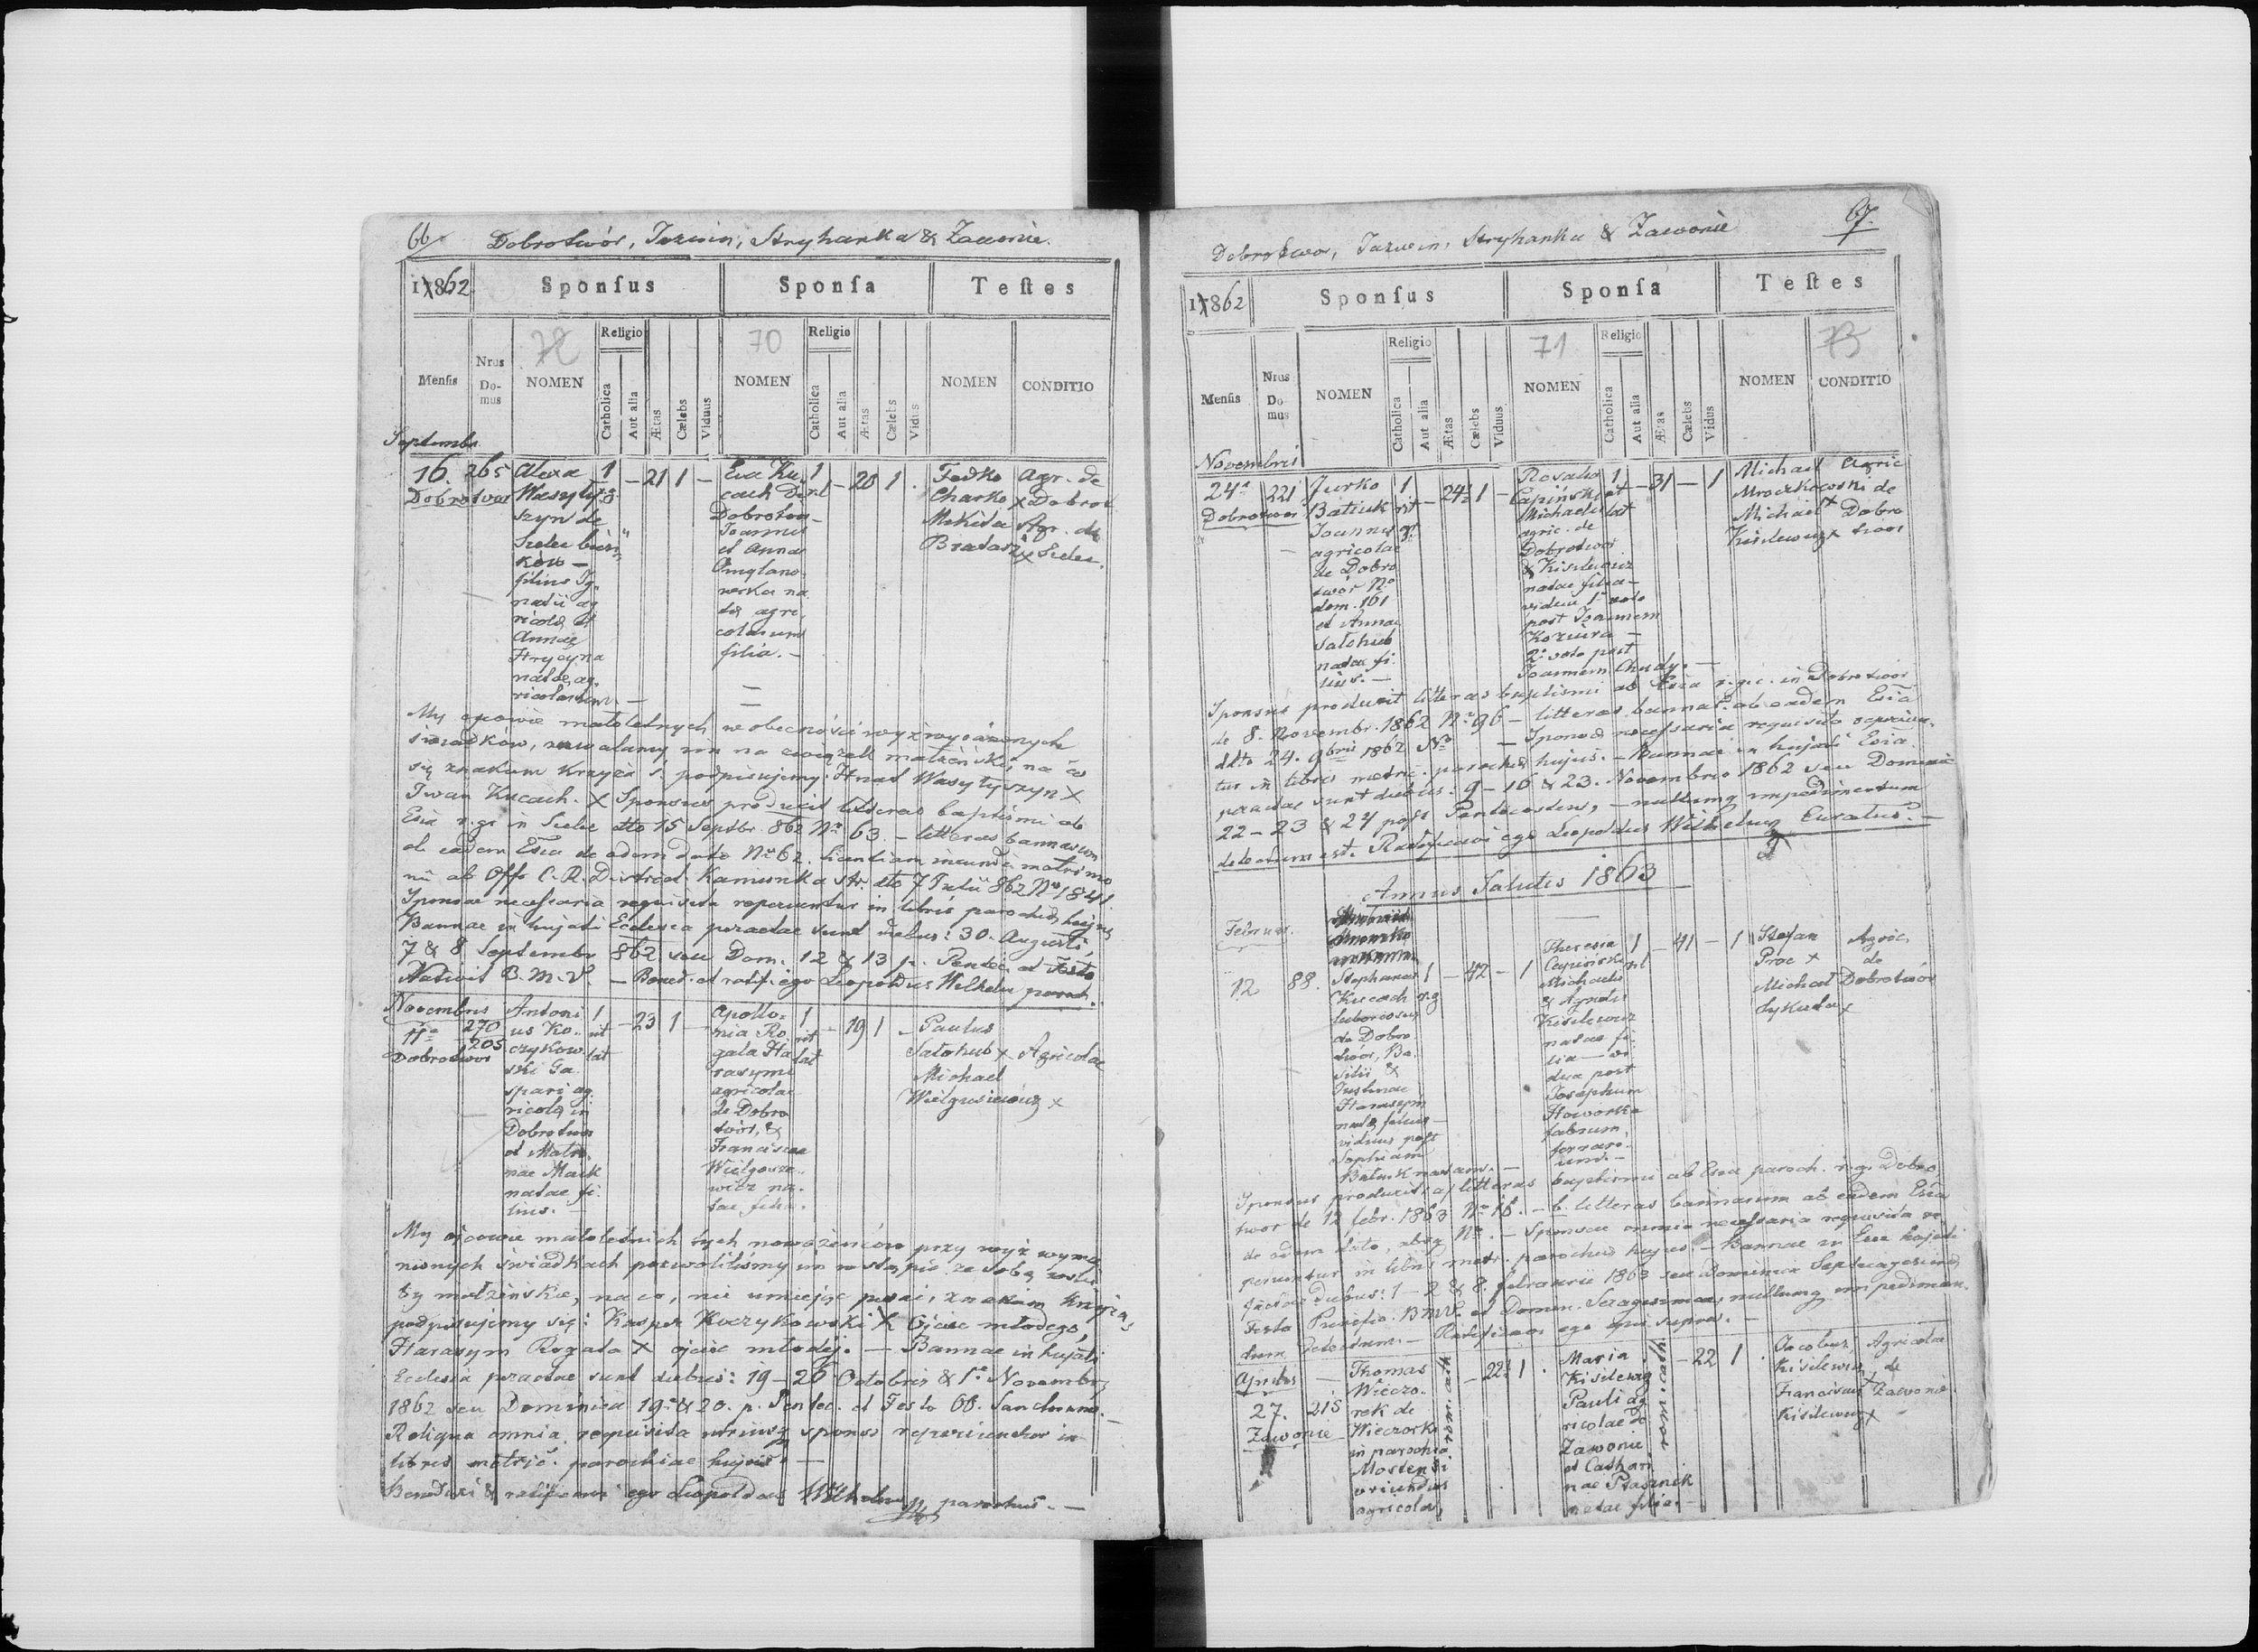 66
Dobrotwór, Jazwin, Stryhanka & Zawonie.
1862
Sponſus
Sponſa
Teſtes
Menſis
Nrus Do-mus
NOMEN
Religio
Catholica
Aut alia
Ætas
Cælebs
Viduus
70
NOMEN
Religio
Catholica
Aut alia
Ætas
Cælebs
Vidus
NOMEN
CONDITIO
Septembr
16. 265
Dobrotwor
Alexa
Wasyły-
szyn de
Sielec
ków —
filius Ig-
natii ag
ricolae et
Annae
Hrycyna
natae, ag-
ricolarum. —
1
r. g.
— 21 1 —
Eva Ku-
cach de
Dobrotwor
Joannis
et Annae
natae agri
colarum
filia. —
1
— 20 1 .
Fedko
Charko x
Mikita
Bradasz x
Agr. de
Dobrot
Agr. de
Sielec.
My ojcowie małoletnych w obecności wyżwyrażonych
świadków, zezwalamy im na związek małżeński, na co
się znakiem krzyża S. podpisujemy: Hnat Wasyłyszyn X
Iwan Kucach. X Sponsus produxit litteras baptismi ab
Ecia r. gr. in Sielec dtto 15 Septbr. 862 No 63. — litteras bannarum
ab eadem Ecia de eodem dato No 62. Licentiam ineundi matrimo
nii ab Offo C. R. District. Kamionka str. dto 7 Julii 862 No 1841.
Sponsae necessaria requisita reperiuntur in libris parochiae hujus
Bannae in hujati Ecclesia peractae sunt diebus: 30. Augusti,
7 & 8 Septembr 862 seu Dom. 12 & 13 p. Pentec. et Festo
Nativit B. M. V. — Bened. et ratif. ego Leopoldus Wilhelm paroch.
Novembris
11a 270
205
Dobrotwor
Antoni
us Ko-
czykow
ski Ga
spari ag
ricolae in
Dobrotwor
et Matro
nae Mack
natae fi
lius. —
1
rit
lat
— 23 1 —
Apollo-
nia Ro
gala Ha
rasymi
agricolae
de Dobro
twór, &
Franciscae
Wielgosze
wicz na-
tae filia.
1
rit
lat
— 19 1 —
Paulus
Sałohub x
Michael
Wielgusiewicz x
Agricolae
My ojcowie małoletnich tych nowożeńców przy wyż wymie
nionych świadkach pozwoliliśmy im wstąpić ze sobą w ślu
by małżeńskie, na co, nie umiejąc pisać, znakiem krzyża
podpisujemy się: Kasper Koczykowski X ojciec młodego,
Harasym Rogala X ojciec młodej. — Bannae in hujati
Ecclesia peractae sunt diebus: 19 — 26 Octobris & 1a Novembris
1862 seu Dominica 19a & 20. p. Pentec. et Festo OO. Sanctorum. —
Reliqua omnia requisita utriusq sponsi reperiuntur in
libris metric. parochiae hujus. —
Benedixi & ratificavi ego Leopoldus Wilhelm parochus. —
67.
Dobrotwor, Jazwin, Stryhanka & Zawonie
1862
Sponſus
Sponſa
Teſtes
Menſis
Nrus Do mus
NOMEN
Religio
Catholica
Aut alia
Ætas
Cælebs
Viduus
71
NOMEN
Religio
Catholica
Aut alia
Ætas
Cælebs
Vidus
NOMEN
CONDITIO
Novembris
24a 221
Dobrotwor
Jurko
Batiuk
Joannis
agricolae
de Dobro
twór No
dom. 161
et Annae
Sałohub
natae fi
lius. —
1
rit
gr.
— 24½ 1 —
Rosalia
Capińska
Michaelis
agric. de
Dobrotwor
& Kisilewicz
natae filia —
vidua 1o voto
post Joannem
Koziura —
2o voto post
Joannem Chudy. —
1
rit
lat
— 31 — 1
Michael
Mroczkowski
Michael x
Kisilewicz x
Agric
de
Dobro
twor
Sponsus produxit litteras baptismi ab Ecia r. gr. in Dobrotwor
de 8. Novembr. 1862 No 96 — litteras bannar. ab eadem Ecia
dtto 24. 9bris 1862 No — Sponsae necessaria requisita reperiun-
tur in libris metric. parochiae hujus. — Bannae in hujati Ecia
peractae sunt diebus: 9 — 16 & 23. Novembris 1862 seu Dominic
22 — 23 & 24 post Pentecosten, — nullumq impedimentum
detectum est. Ratificavi ego Leopoldus Wilhelm Curatus. —
Annus Salutis 1863
Februar.
12 88.
Stephanus
Kucach
laboriosus
de Dobro
twór, Ba-
silii &
Justinae
Harasym
natae filius —
viduus post
Sophiam
Batiuk natam. —
1
r. g
— 42 — 1
Theresia
Capińska
Michaelis
& Agnetis
Kisilewicz
natae fi
lia — vi
dua post
Josephum
Howorka
fabrum
ferrari-
um. —
1
r. l
— 41 — 1
Stefan
Proc x
Michał
Łykuta x
Agric.
de
Dobrotwór
Sponsus produxit a/ litteras baptismi ab Ecia paroch. r. g. Dobro
twor de 12 febr. 1863 No 16. — b. litteras bannarum ab eadem Ecia
de eodem dato, absq No. — Sponsae omnia necessaria requisita re
periuntur in libris metr. parochiae hujus — Bannae in Ecia hujati
factae diebus: 1 — 2 & 8. februarii 1863 seu Dominica Septuagesima,
Festo Purific. BMV. et Domin. Sexagesimae, nullumq impedimen-
tum detectum. — Ratificavi ego qui supra. —
Aprilis
27. 215
Zawonie
Thomas
Wieczo-
rek de
Wieczorki
in parochia
Mostensi
oriundus
agricola,
rom: cath.
— 22½ 1 .
Maria
Kisilewicz
Pauli ag
ricolae de
Zawonie
et Cathari
nae Ptasznik
natae filia. —
rom: cath.
— 22 1 .
Jacobus
Kisilewicz
Franciscus x
Kisilewicz x
Agricolae
de
Zawonie